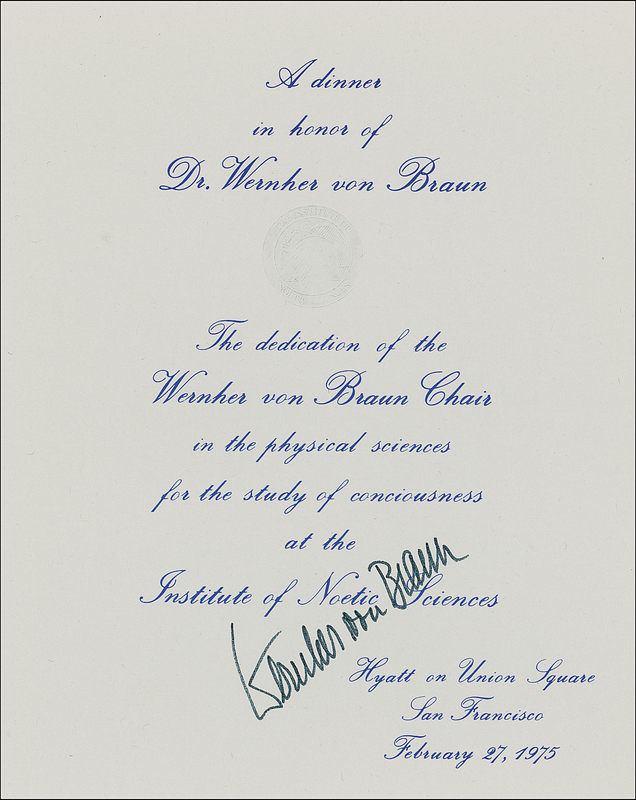 A dinner
in honor of
Dr. Wernher von Braun
The dedication of the
Wernher von Braun Chair
in the physical sciences
for the study of conciousness
at the
Institute of Noetic Sciences
Wernher von Braun
Hyatt on Union Square
San Francisco
February 27, 1975